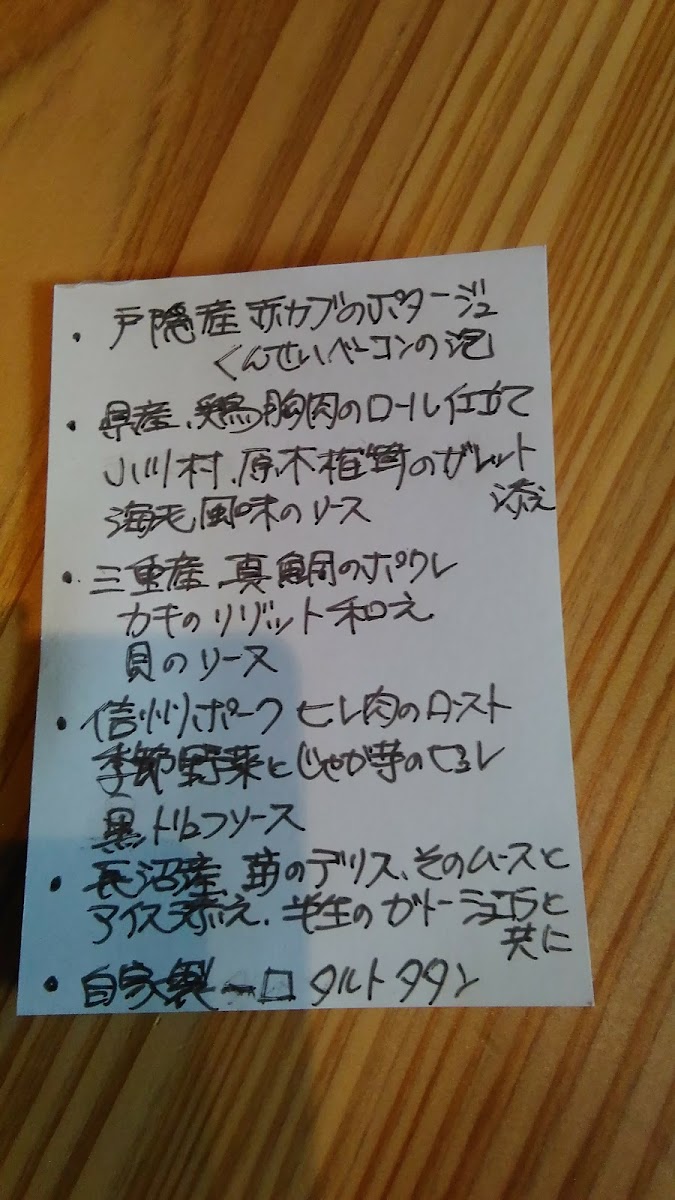 ・戸隠産赤カブのポタージュ
くんせいベーコンの泡
・県産、鶏胸肉のロール仕立て
小川村、原木椎茸のガレット
添え
海老風味のソース
・三重産、真鯛のポワレ
カキのリゾット和え
貝のソース
・信州ポーク ヒレ肉のロースト
季節野菜とじゃが芋のピュレ
黒トリュフソース
・長沼産、苺のデリス、そのムースと
アイス添え、半生のガトーショコラと
共に
・自家製一口タルトタタン